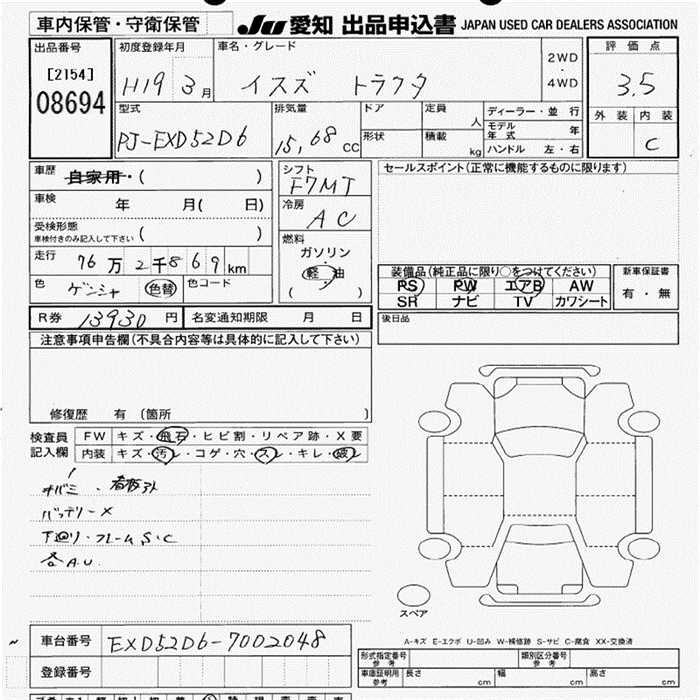 車内保管・守衛保管 JU 愛知 出品申込書 JAPAN USED CAR DEALERS ASSOCIATION
出品番号 初度登録年月 車名・グレード 評価点
[2154] H19 3月 イスズ トラクタ 2WD・4WD 3.5
08694 型式 排気量 ドア 定員 人 ディーラー・並行 外装 内装
PJ-EXD52D6 15,68 cc 形状 積載 kg モデル年式 年 C
ハンドル 左・右
車歴 自家用・( ) シフト F7MT セールスポイント(正常に機能するものに限ります)
車検 年 月( 日) 冷房 AC
受検形態 車検付きのみ記入して下さい ( ) 燃料
走行 76万2千869km ガソリン・軽油 装備品(純正品に限り○をつけてください) 新車保証書
色 ゲンシャ 色替 色コード ( ) PS PW エアB AW 有・無
SR ナビ TV カワシート
R券 13930円 名変通知期限 月 日 後日品
注意事項申告欄(不具合内容等は具体的に記入して下さい)
修復歴 有 (箇所 )
検査員記入欄 FW キズ・飛石・ヒビ割・リペア跡・X要
内装 キズ・汚レ・コゲ・穴・スレ・キレ・破レ
バッテリーX
下廻り・フレームS・C
各A.U.
スペア
A-キズ E-エクボ U-凹み W-補修跡 S-サビ C-腐食 XX-交換済
車台番号 EXD52D6-7002048
型式指定番号 参考 類別区分番号 参考
登録番号 車庫証明用 参考 長さ cm 幅 cm 高さ cm